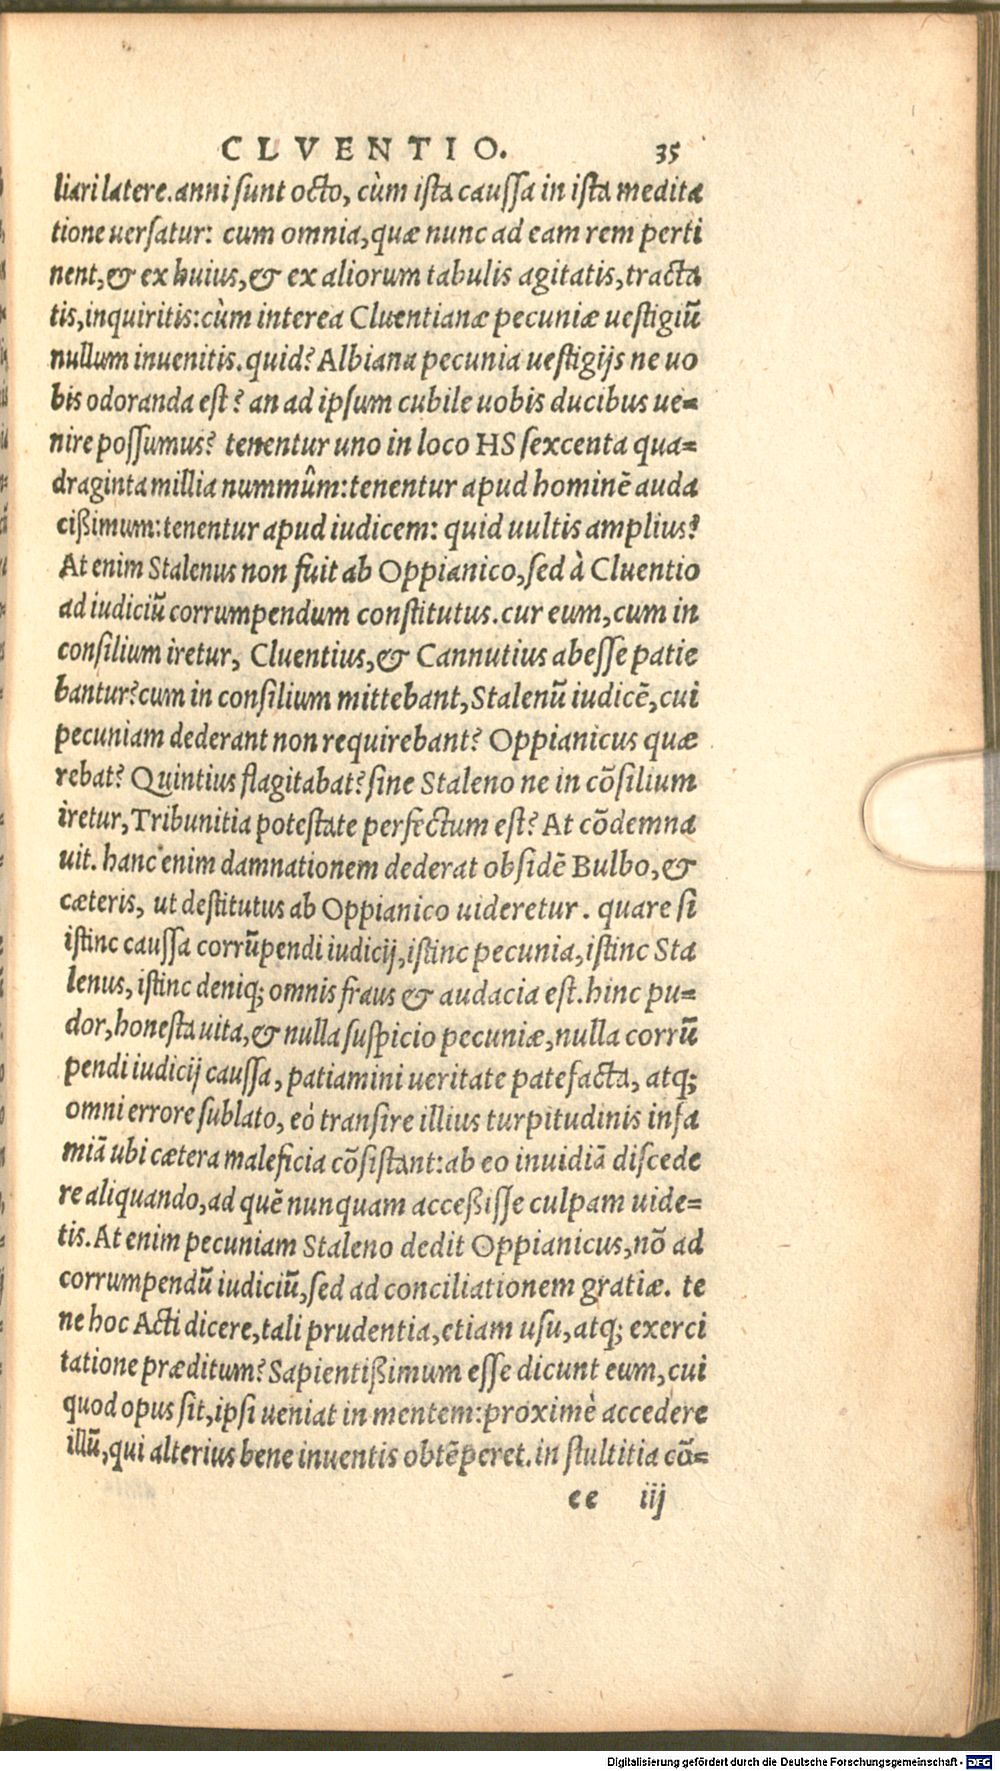 CLVENTIO. 35
liari latere. anni sunt octo, cùm ista caussa in ista medita
tione uersatur: cum omnia, quæ nunc ad eam rem perti
nent, & ex huius, & ex aliorum tabulis agitatis, tracta
tis, inquiritis: cùm interea Cluentianæ pecuniæ uestigiũ
nullum inuenitis. quid? Albiana pecunia uestigijs ne uo
bis odoranda est? an ad ipsum cubile uobis ducibus ue=
nire possumus? tenentur uno in loco HS sexcenta qua=
draginta millia nummûm: tenentur apud hominẽ auda
cißimum: tenentur apud iudicem: quid uultis amplius?
At enim Stalenus non fuit ab Oppianico, sed à Cluentio
ad iudiciũ corrumpendum constitutus. cur eum, cum in
consilium iretur, Cluentius, & Cannutius abesse patie
bantur? cum in consilium mittebant, Stalenũ iudicẽ, cui
pecuniam dederant non requirebant? Oppianicus quæ
rebat? Quintius flagitabat? sine Staleno ne in cõsilium
iretur, Tribunitia potestate perfectum est? At cõdemna
uit. hanc enim damnationem dederat obsidẽ Bulbo, &
cæteris, ut destitutus ab Oppianico uideretur. quare si
istinc caussa corrũpendi iudicij, istinc pecunia, istinc Sta
lenus, istinc deniq; omnis fraus & audacia est. hinc pu=
dor, honesta uita, & nulla suspicio pecuniæ, nulla corrũ
pendi iudicij caussa, patiamini ueritate patefacta, atq;
omni errore sublato, eò transire illius turpitudinis infa
miã ubi cætera maleficia cõsistant: ab eo inuidiã discede
re aliquando, ad quẽ nunquam acceßisse culpam uide=
tis. At enim pecuniam Staleno dedit Oppianicus, nõ ad
corrumpendũ iudiciũ, sed ad conciliationem gratiæ. te
ne hoc Acti dicere, tali prudentia, etiam usu, atq; exerci
tatione præditum? Sapientißimum esse dicunt eum, cui
quod opus sit, ipsi ueniat in mentem: proximè accedere
illũ, qui alterius bene inuentis obtẽperet. in stultitia cõ=
ee iij
Digitalisierung gefördert durch die Deutsche Forschungsgemeinschaft - DFG